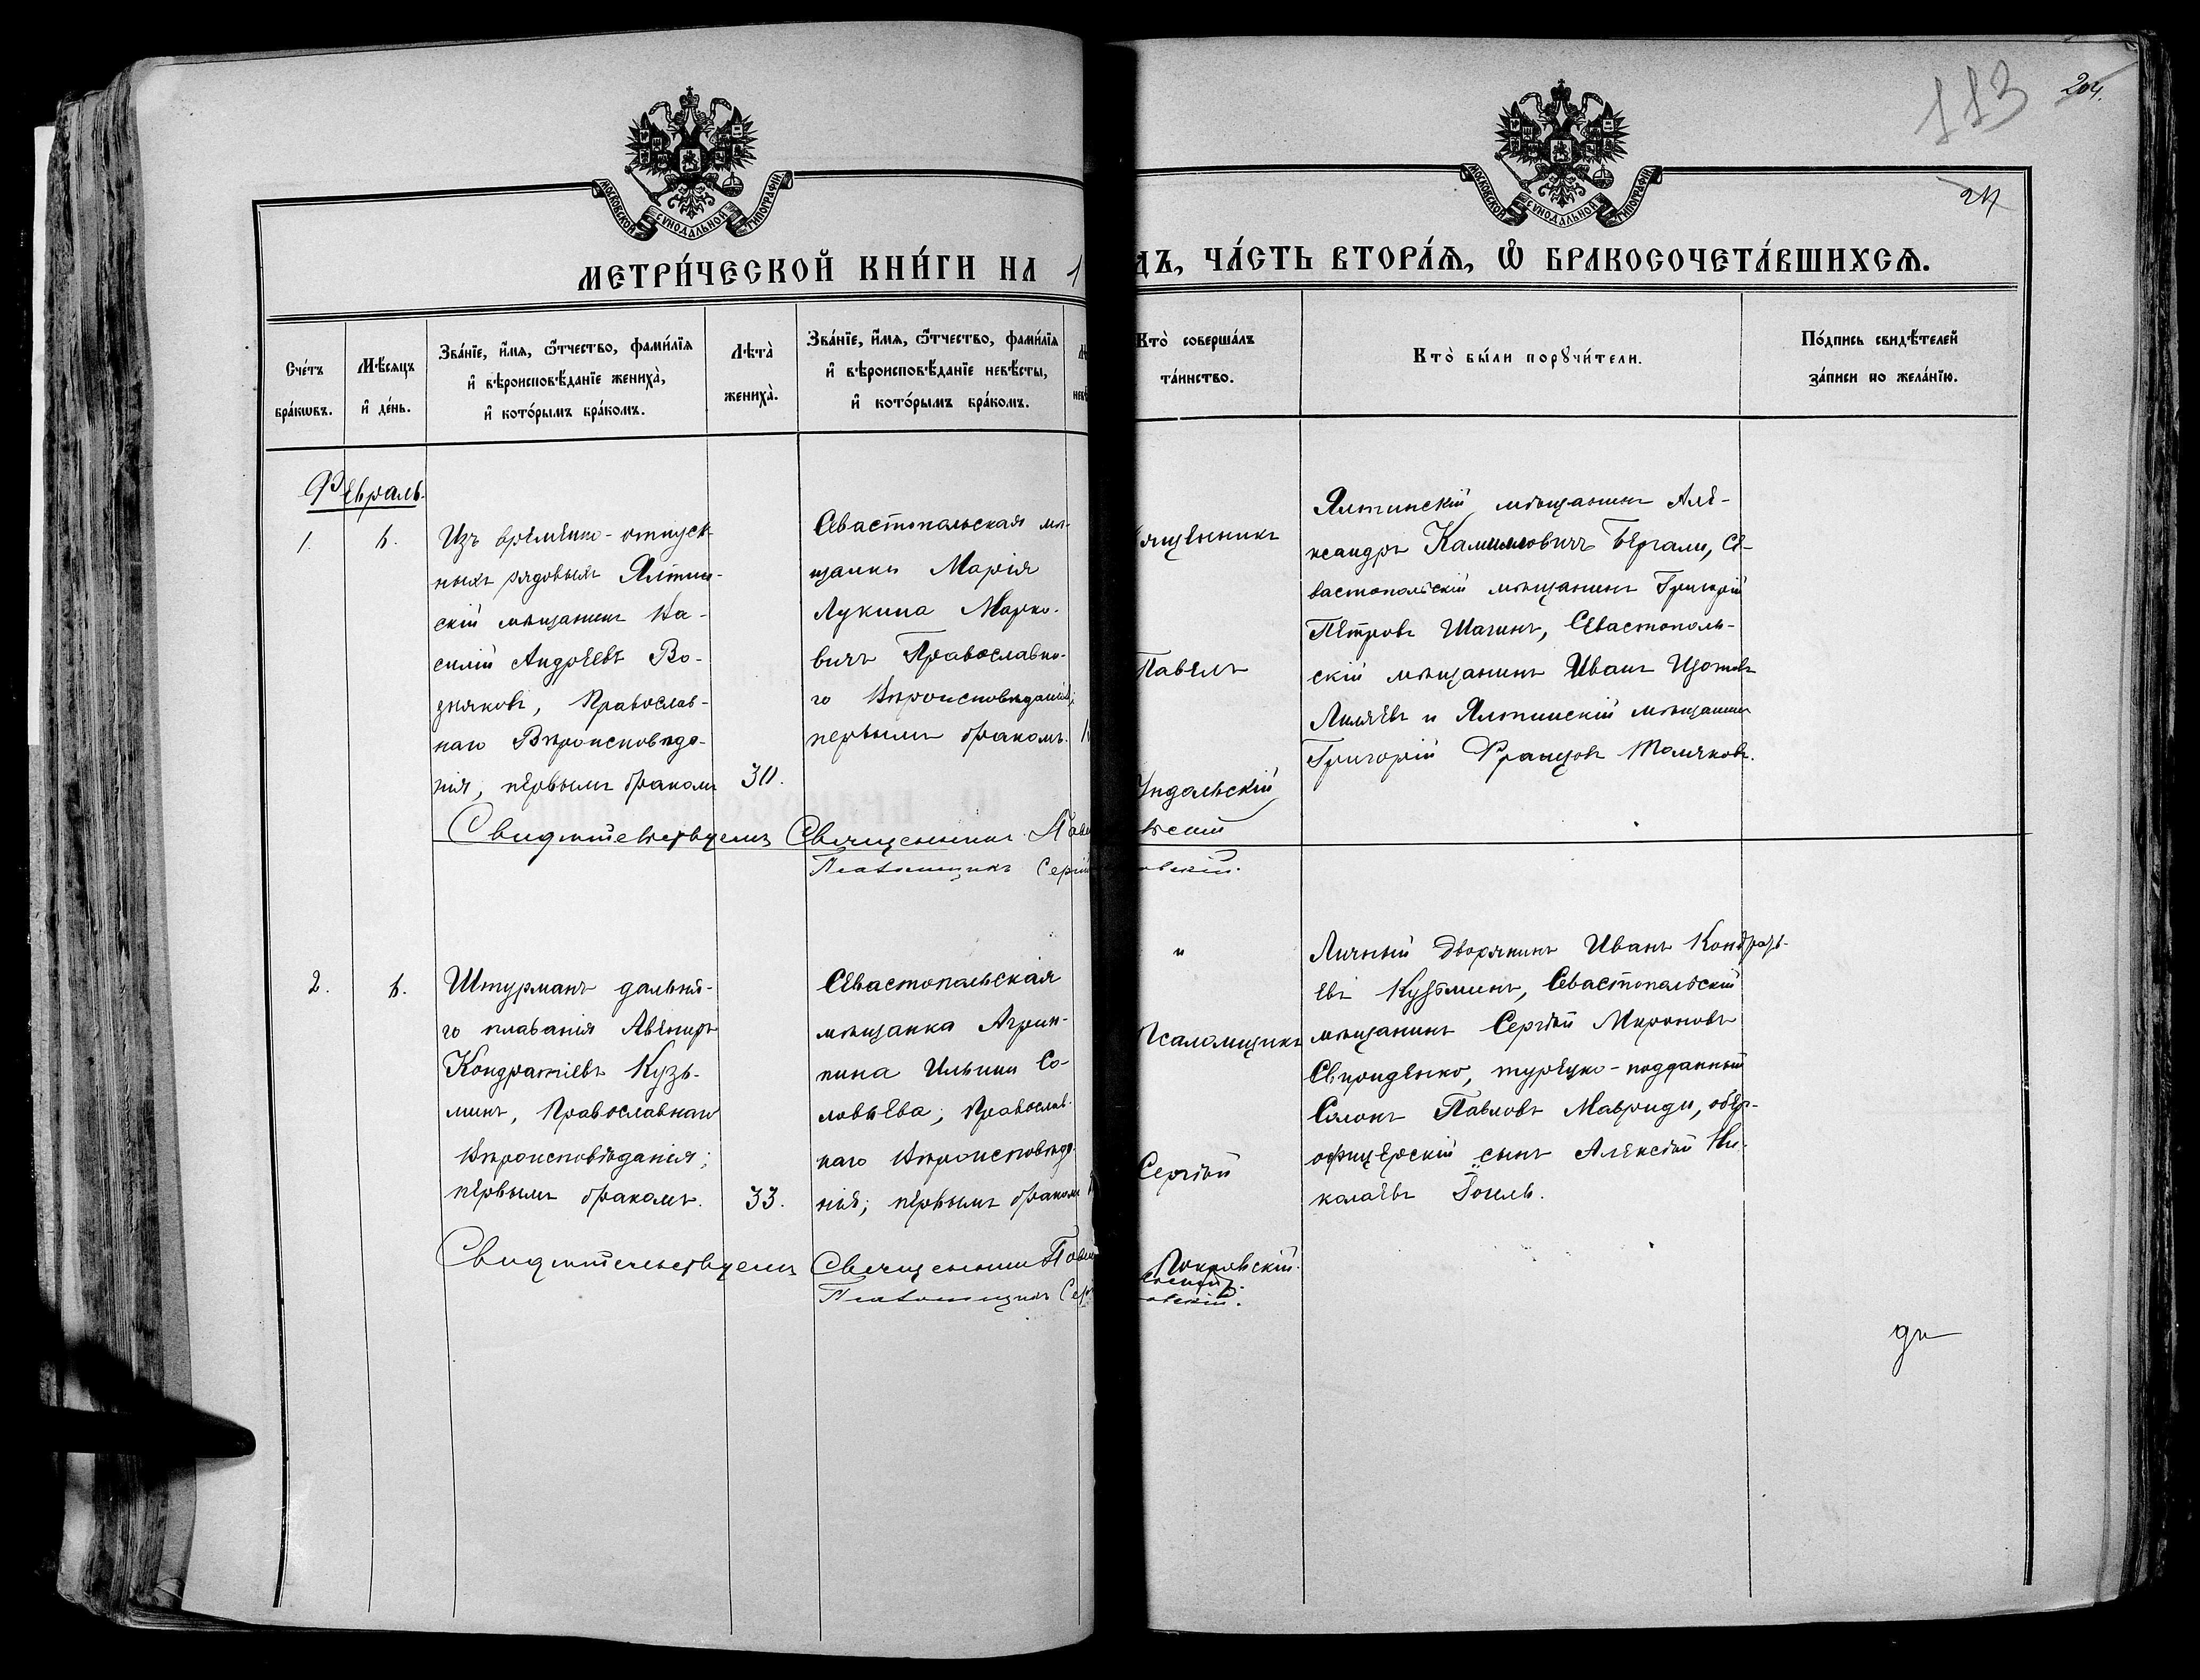 113
204.
24
МОСКОВСКОЙ СУНОДАЛЬНОЙ ТИПОГРАФІИ
МОСКОВСКОЙ СУНОДАЛЬНОЙ ТИПОГРАФІИ
МЕТРИ́ЧЕСКОЙ КНИ́ГИ НА 1
ДЪ, ЧА́СТЬ ВТОРА́Ѧ, Ѡ҆ БРАКОСОЧЕТА́ВШИХСѦ.
Сче́тъ
бра́кѡвъ.
Мѣ́сяцъ
и҆ де́нь.
Зва́нїе, и҆́мя, ѻ҆́тчество, фами́лїя
и҆ вѣроисповѣ́данїе жениха̀,
и҆ кото́рымъ бра́комъ.
Лѣта̀
жениха̀.
Зва́нїе, и҆́мя, ѻ҆́тчество, фами́лїя
и҆ вѣроисповѣ́данїе невѣ́сты,
и҆ кото́рымъ бра́комъ.
Кто̀ соверша́лъ
та́инство.
Кто̀ бы́ли порꙋчи́тели.
По́дпись свидѣ́телей
за́писи по жела́нїю.
Февраль.
1.
6.
Изъ временно-отпуск-
ныхъ рядовыхъ Ялтин-
скій мѣщанинъ Ва-
силій Андреевъ Во-
зняковъ, Православ-
наго Вѣроисповѣда-
нія, первымъ бракомъ
30.
Севастопольская мѣ-
щанка Марія
Лукина Марко-
вичъ Православна-
го Вѣроисповѣданія;
первымъ бракомъ.
ященникъ
Павелъ
Ялтинскій мѣщанинъ Але-
ксандръ Камилловичъ Бергали, Се-
вастопольскій мѣщанинъ Григорій
Петровъ Шагинъ, Севастополь-
скій мѣщанинъ Иванъ Изотовъ
Лиляевъ и Ялтинскій мѣщанинъ
Григорій Францовъ Толмяковъ.
Свидѣтельствуемъ Священникъ Паве
вскій
Псаломщикъ Сергій
овскій.
2.
6.
Штурманъ дальня-
го плаванія Авениръ
Кондратіевъ Кузь-
минъ, Православнаго
Вѣроисповѣданія;
первымъ бракомъ.
33.
Севастопольская
мѣщанка Агрип-
пина Ильина Со-
ловьева; Православ-
наго Вѣроисповѣда-
нія; первымъ бракомъ
и
Псаломщикъ
Сергѣй
Покровскій.
Личный Дворянинъ Иванъ Кондрать-
евъ Кузьминъ, Севастопольскій
мѣщанинъ Сергѣй Мироновъ
Свириденко, турецко-подданный
Солонъ Павловъ Мавриди, обер-
офицерскій сынъ Алексѣй Ни-
колаевъ Гоиль.
Свидѣтельствуемъ Священникъ Павел
Псаломщикъ Сер
овскій.